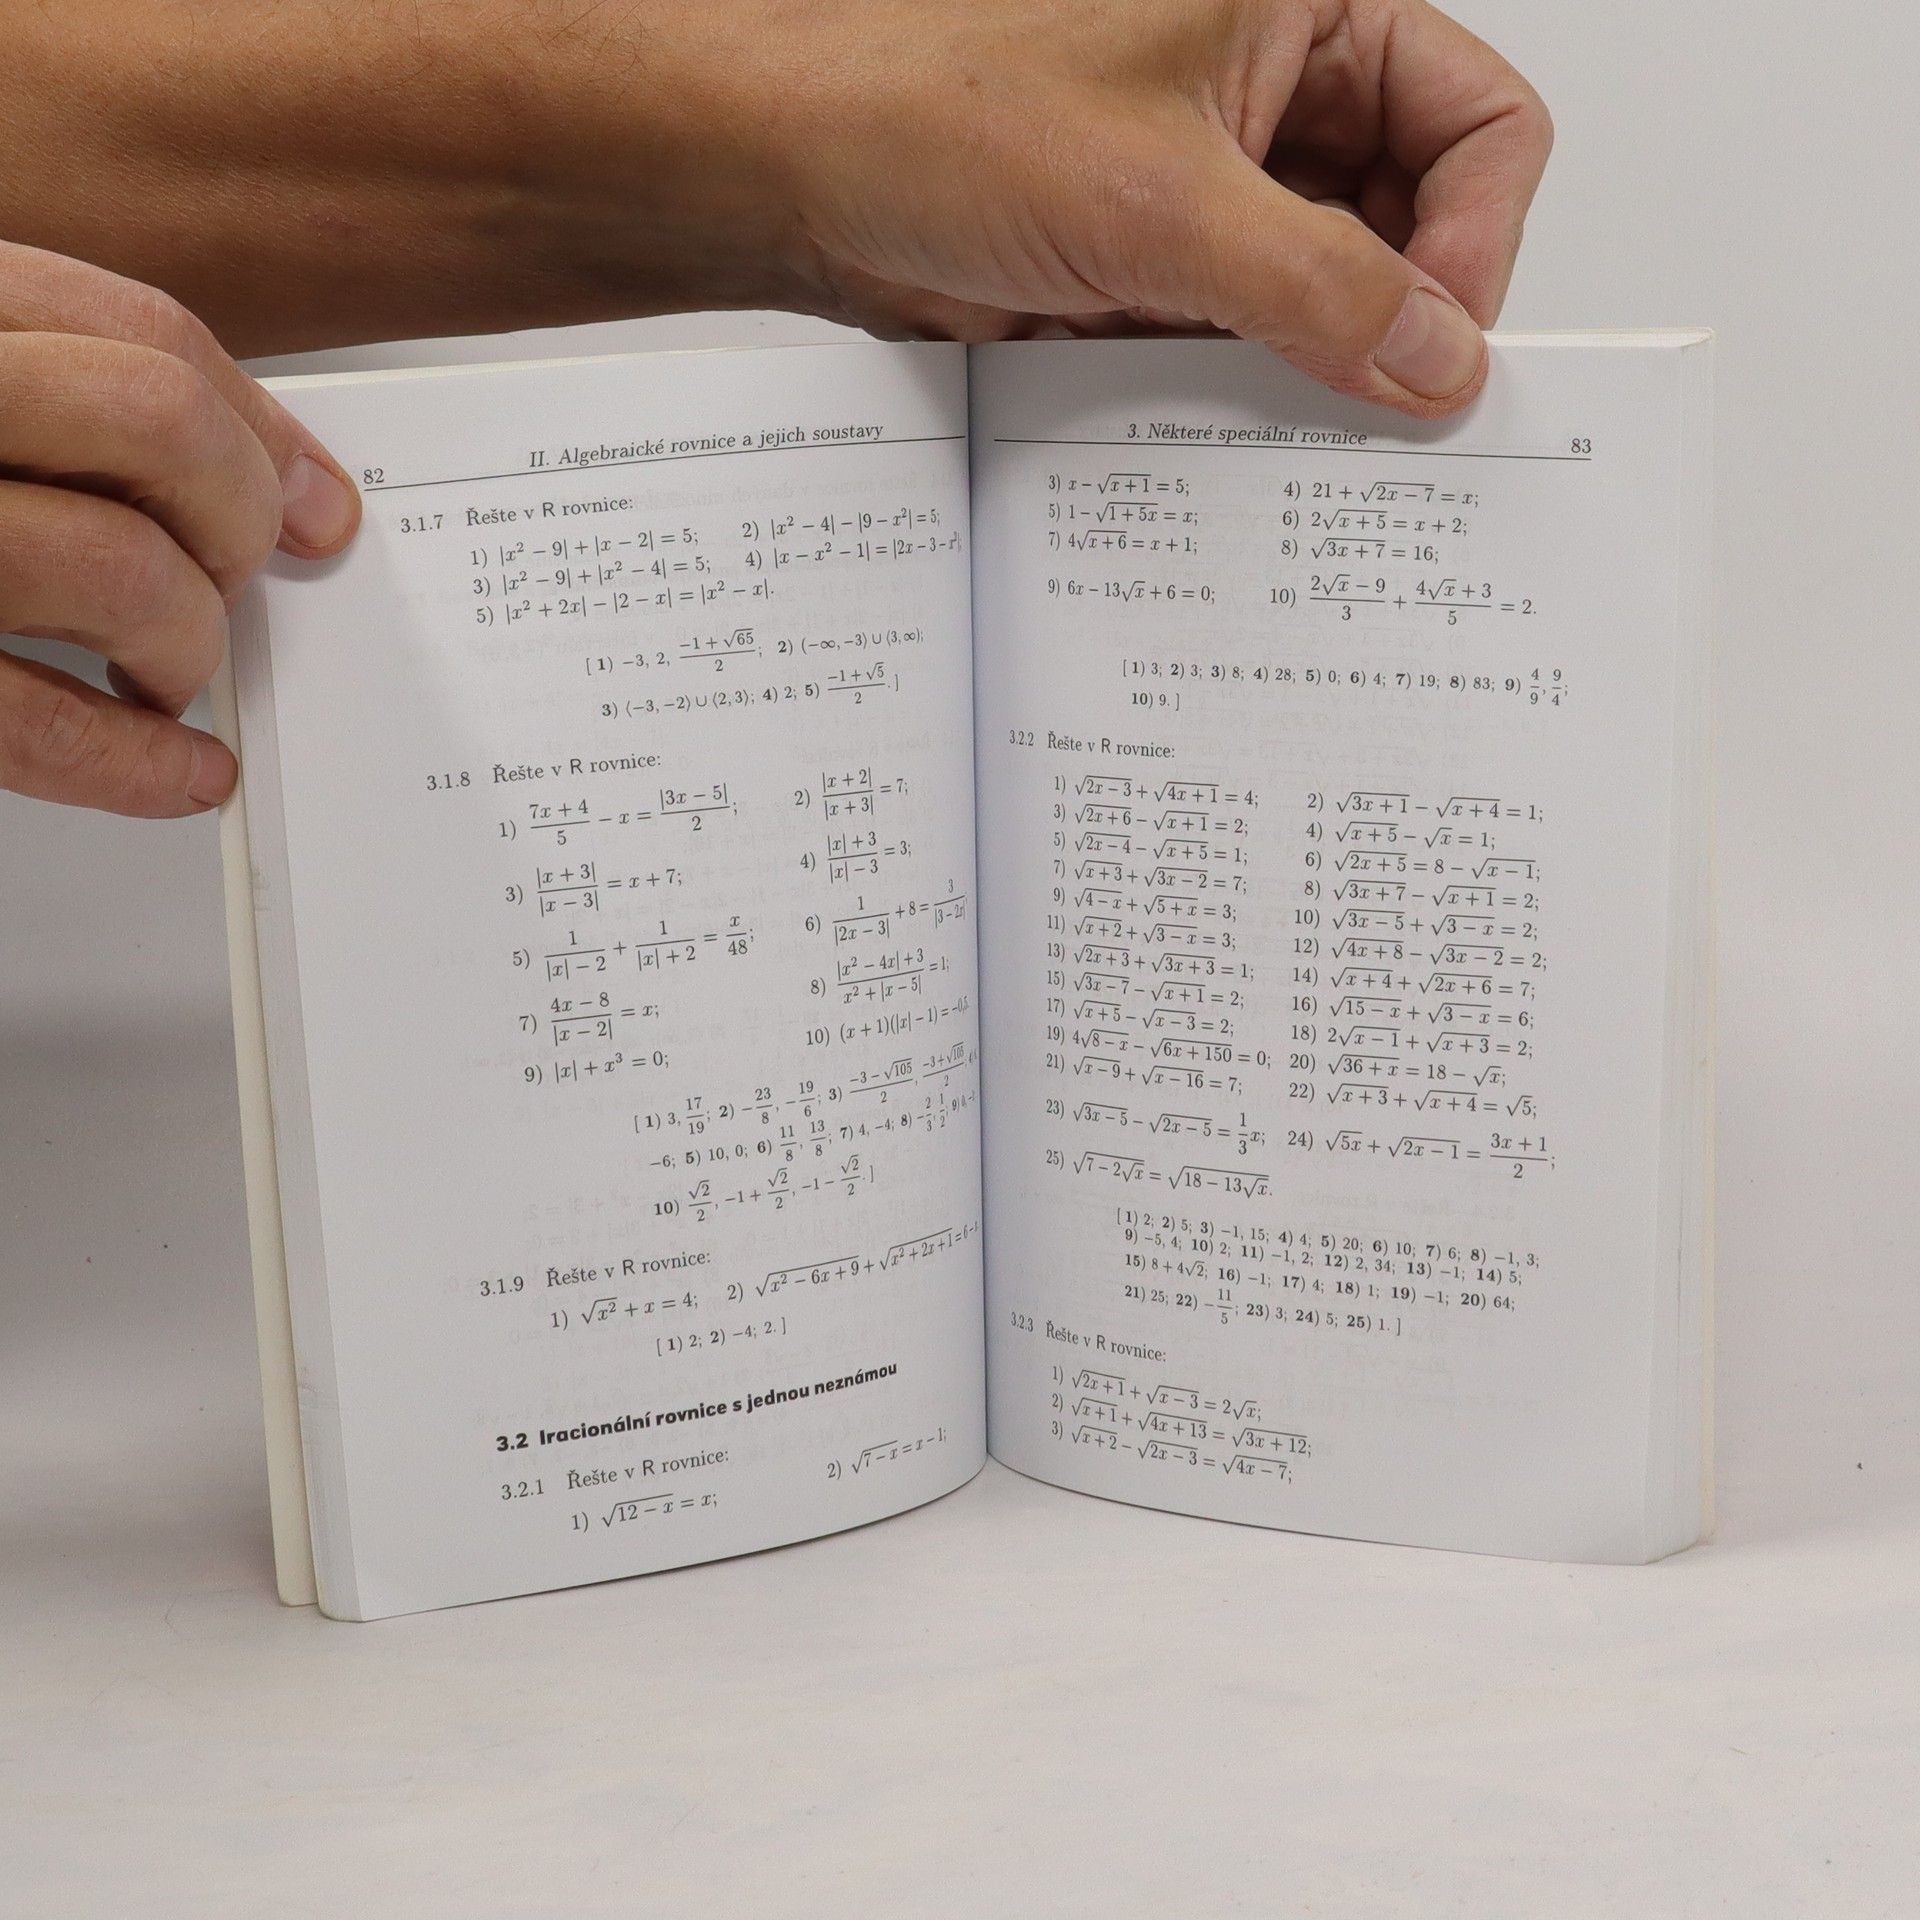 82 II. Algebraické rovnice a jejich soustavy
3.1.7 Řešte v R rovnice:
1) |x² − 9| + |x − 2| = 5; 2) |x² − 4| − |9 − x²| = 5;
3) |x² − 9| + |x² − 4| = 5; 4) |x − x² − 1| = |2x − 3 − x²|;
5) |x² + 2x| − |2 − x| = |x² − x|.
[ 1) −3, 2, (−1 + √65)/2; 2) (−∞, −3⟩ ∪ ⟨3, ∞);
3) ⟨−3, −2⟩ ∪ ⟨2, 3⟩; 4) 2; 5) (−1 + √5)/2. ]
3.1.8 Řešte v R rovnice:
1) (7x + 4)/5 − x = |3x − 5|/2; 2) |x + 2|/|x + 3| = 7;
3) |x + 3|/|x − 3| = x + 7; 4) (|x| + 3)/(|x| − 3) = 3;
5) 1/(|x| − 2) + 1/(|x| + 2) = x/48; 6) 1/|2x − 3| + 8 = 3/|3 − 2x|
7) (4x − 8)/|x − 2| = x; 8) (|x² − 4x| + 3)/(x² + |x − 5|) = 1;
9) |x| + x³ = 0; 10) (x + 1)(|x| − 1) = −0,5.
[ 1) 3, 17/19; 2) −23/8, −19/6; 3) (−3 − √105)/2, (−3 + √105)/2;
−6; 5) 10, 0; 6) 11/8, 13/8; 7) 4, −4; 8) −2/3, 1/2; 9) 0,
10) √2/2, −1 + √2/2, −1 − √2/2. ]
3.1.9 Řešte v R rovnice:
1) √(x²) + x = 4; 2) √(x² − 6x + 9) + √(x² + 2x + 1) = 6 −
[ 1) 2; 2) −4; 2. ]
3.2 Iracionální rovnice s jednou neznámou
3.2.1 Řešte v R rovnice:
1) √(12 − x) = x; 2) √(7 − x) = x − 1;
3. Některé speciální rovnice 83
3) x − √(x + 1) = 5; 4) 21 + √(2x − 7) = x;
5) 1 − √(1 + 5x) = x; 6) 2√(x + 5) = x + 2;
7) 4√(x + 6) = x + 1; 8) √(3x + 7) = 16;
9) 6x − 13√x + 6 = 0; 10) (2√x − 9)/3 + (4√x + 3)/5 = 2.
[ 1) 3; 2) 3; 3) 8; 4) 28; 5) 0; 6) 4; 7) 19; 8) 83; 9) 4/9, 9/4;
10) 9. ]
3.2.2 Řešte v R rovnice:
1) √(2x − 3) + √(4x + 1) = 4; 2) √(3x + 1) − √(x + 4) = 1;
3) √(2x + 6) − √(x + 1) = 2; 4) √(x + 5) − √x = 1;
5) √(2x − 4) − √(x + 5) = 1; 6) √(2x + 5) = 8 − √(x − 1);
7) √(x + 3) + √(3x − 2) = 7; 8) √(3x + 7) − √(x + 1) = 2;
9) √(4 − x) + √(5 + x) = 3; 10) √(3x − 5) + √(3 − x) = 2;
11) √(x + 2) + √(3 − x) = 3; 12) √(4x + 8) − √(3x − 2) = 2;
13) √(2x + 3) + √(3x + 3) = 1; 14) √(x + 4) + √(2x + 6) = 7;
15) √(3x − 7) − √(x + 1) = 2; 16) √(15 − x) + √(3 − x) = 6;
17) √(x + 5) − √(x − 3) = 2; 18) 2√(x − 1) + √(x + 3) = 2;
19) 4√(8 − x) − √(6x + 150) = 0; 20) √(36 + x) = 18 − √x;
21) √(x − 9) + √(x − 16) = 7; 22) √(x + 3) + √(x + 4) = √5;
23) √(3x − 5) − √(2x − 5) = 1/3 x; 24) √(5x) + √(2x − 1) = (3x + 1)/2;
25) √(7 − 2√x) = √(18 − 13√x).
[ 1) 2; 2) 5; 3) −1, 15; 4) 4; 5) 20; 6) 10; 7) 6; 8) −1, 3;
9) −5, 4; 10) 2; 11) −1, 2; 12) 2, 34; 13) −1; 14) 5;
15) 8 + 4√2; 16) −1; 17) 4; 18) 1; 19) −1; 20) 64;
21) 25; 22) −11/5; 23) 3; 24) 5; 25) 1. ]
3.2.3 Řešte v R rovnice:
1) √(2x + 1) + √(x − 3) = 2√x;
2) √(x + 1) + √(4x + 13) = √(3x + 12);
3) √(x + 2) − √(2x − 3) = √(4x − 7);